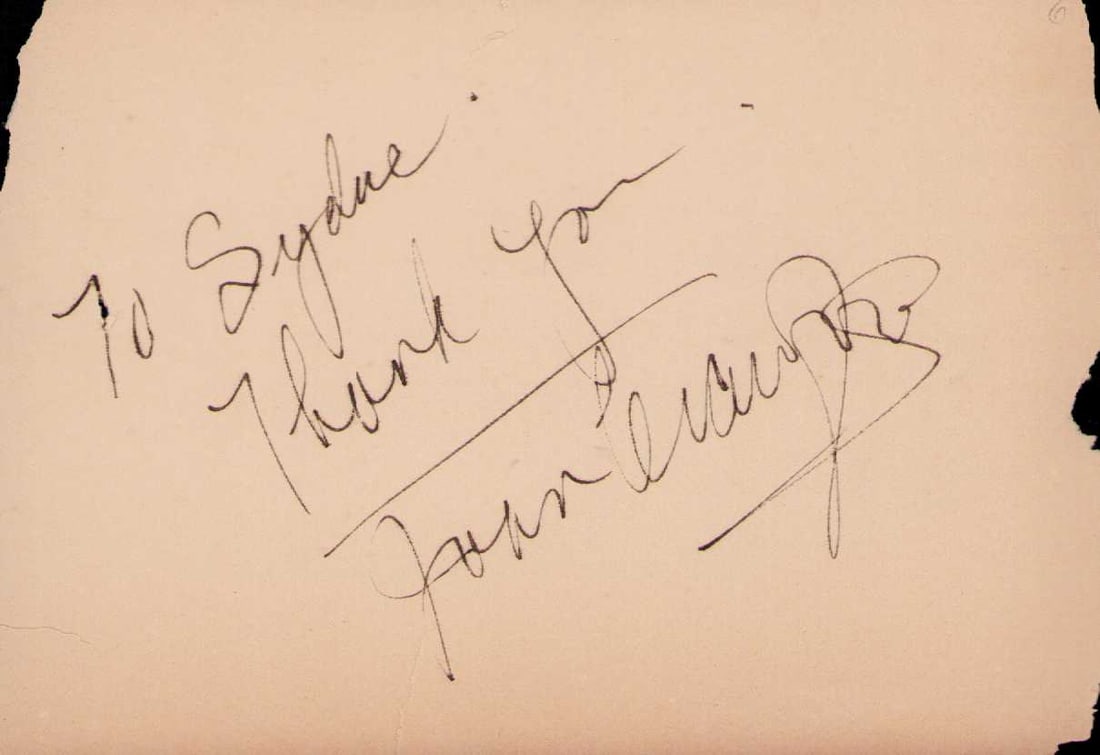 To Sydue
Thank You
Joan Crawford